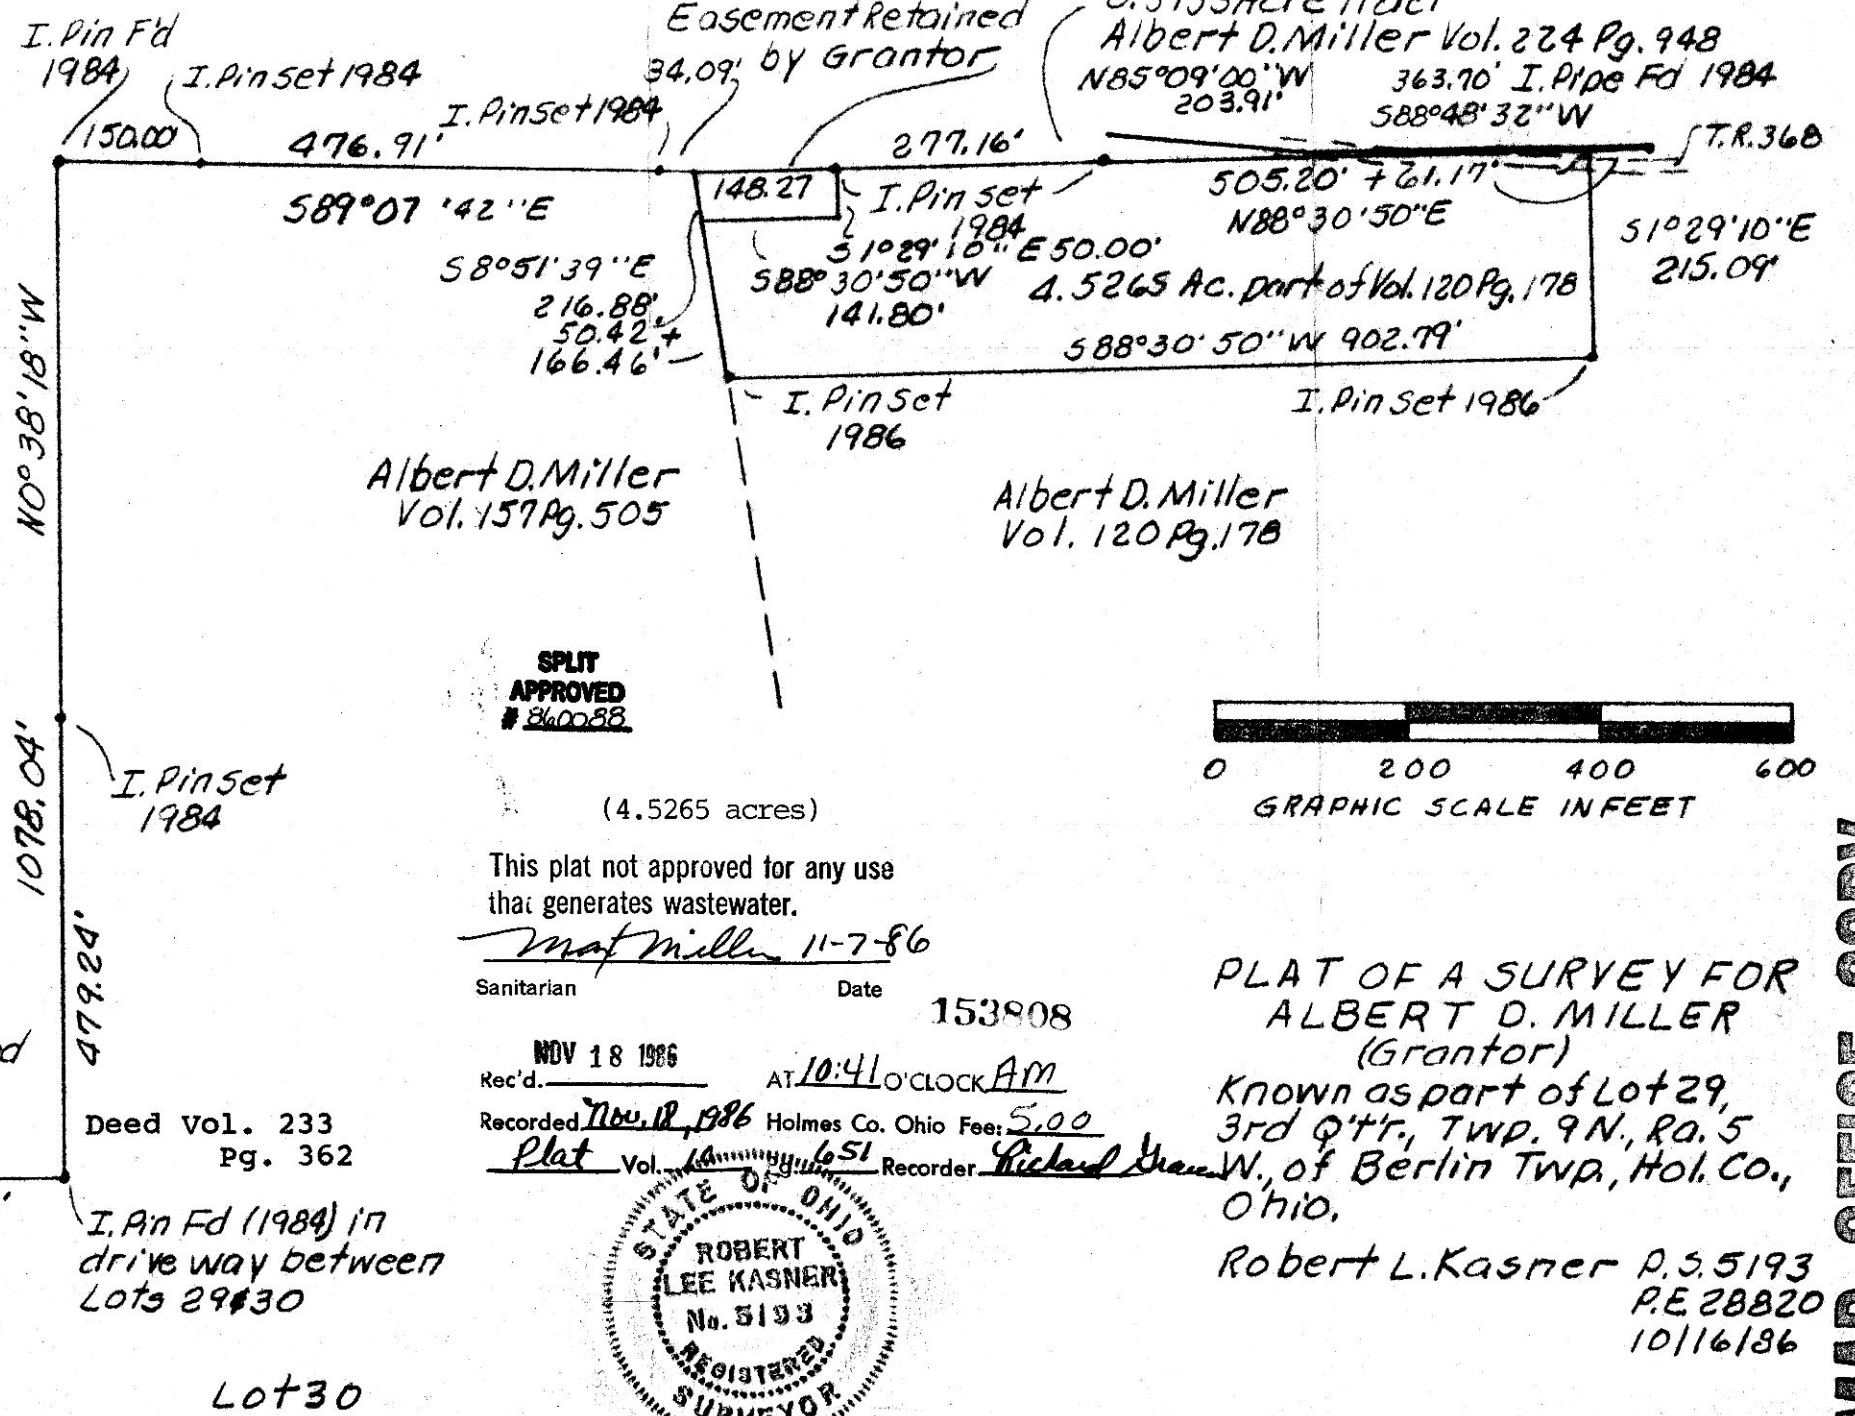 I. Pin F'd
1984
I. Pin set 1984
150.00
476.91'
I. Pin set 1984
Easement Retained
by Grantor
34.09'
277.16'
Albert D. Miller Vol. 224 Pg. 948
N85°09'00"W
203.91'
363.70' I. Pipe Fd 1984
S88°48'32"W
T.R. 368
S89°07'42"E
148.27
I. Pin set
1984
505.20' + 61.17'
N88°30'50"E
S1°29'10"E
215.09'
S8°51'39"E
216.88'
50.42' +
166.46'
S1°29'10"E 50.00'
S88°30'50"W
141.80'
4.5265 Ac. part of Vol. 120 Pg. 178
S88°30'50"W 902.79'
I. Pin Set
1986
I. Pin Set 1986
N0°38'18"W
1078.04'
479.24'
Albert D. Miller
Vol. 157 Pg. 505
Albert D. Miller
Vol. 120 Pg. 178
SPLIT
APPROVED
# 860088
I. Pin set
1984
(4.5265 acres)
0 200 400 600
GRAPHIC SCALE IN FEET
This plat not approved for any use
that generates wastewater.
Max Miller 11-7-86
Sanitarian Date
153808
NOV 18 1986
Rec'd. AT 10:41 O'CLOCK AM
Recorded Nov. 18, 1986 Holmes Co. Ohio Fee: 5.00
Plat Vol. Pg. 651 Recorder Richard
Deed Vol. 233
Pg. 362
I. Pin Fd (1984) in
drive way between
Lots 29 & 30
Lot 30
STATE OF OHIO
ROBERT
LEE KASNER
No. 5193
REGISTERED
SURVEYOR
PLAT OF A SURVEY FOR
ALBERT D. MILLER
(Grantor)
Known as part of Lot 29,
3rd Q't'r., Twp. 9 N., Ra. 5
W., of Berlin Twp., Hol. Co.,
Ohio.
Robert L. Kasner P.S. 5193
P.E. 28820
10/16/86